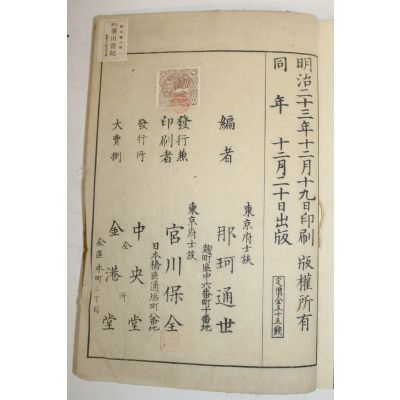 明治二十三年十二月十九日印刷 版權所有
同年 十二月二十日出版
定價金五十五錢
東京府士族
編者 那珂通世
麹町區中六番町十番地
東京府士族
發行兼印刷者 宮川保全
日本橋區通塩町八番地
發行所 中央堂
仝所
大賣捌 金港堂
仝區本町三丁目
臺山書院